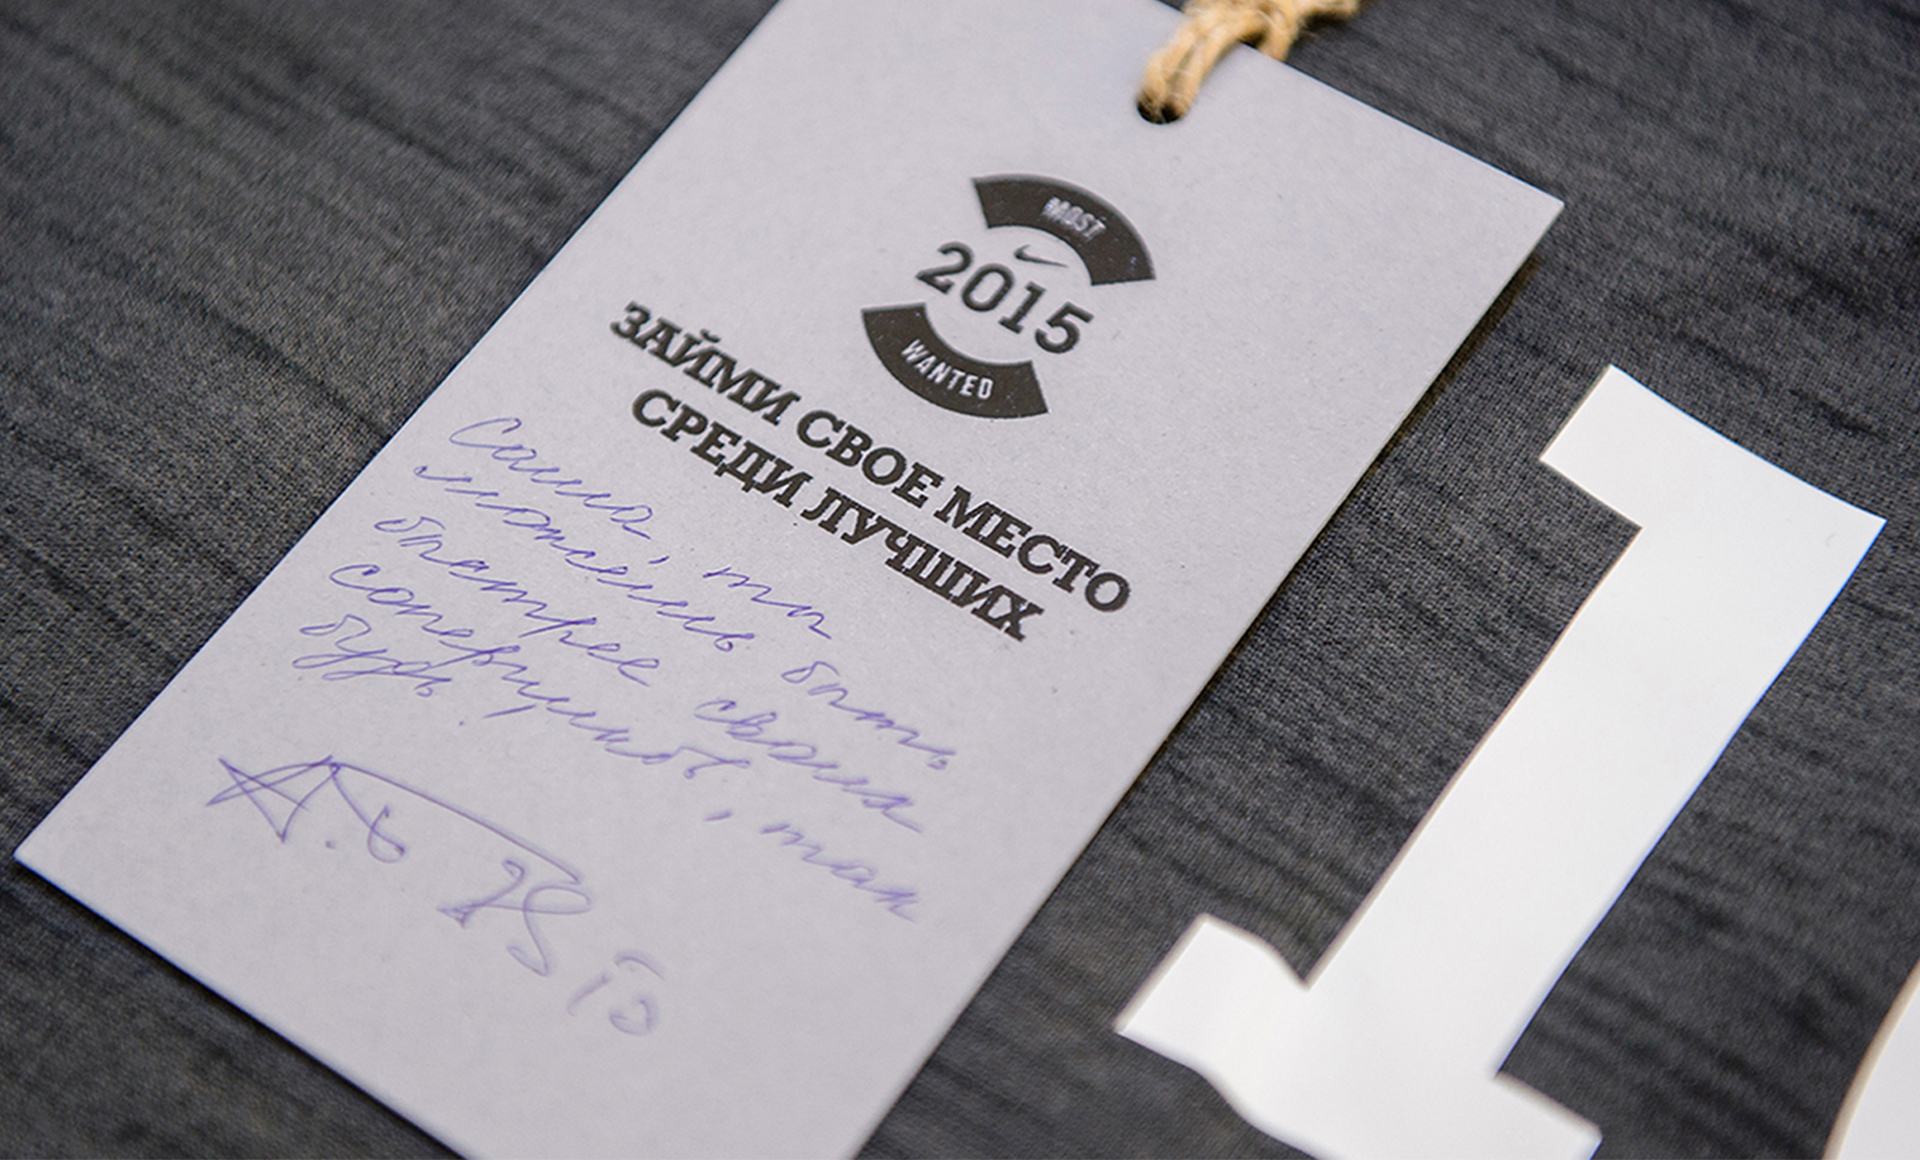 MOST
2015
WANTED
ЗАЙМИ СВОЕ МЕСТО
СРЕДИ ЛУЧШИХ
Саша, ты
можешь быть
быстрее своих
соперников, так
будь!
1